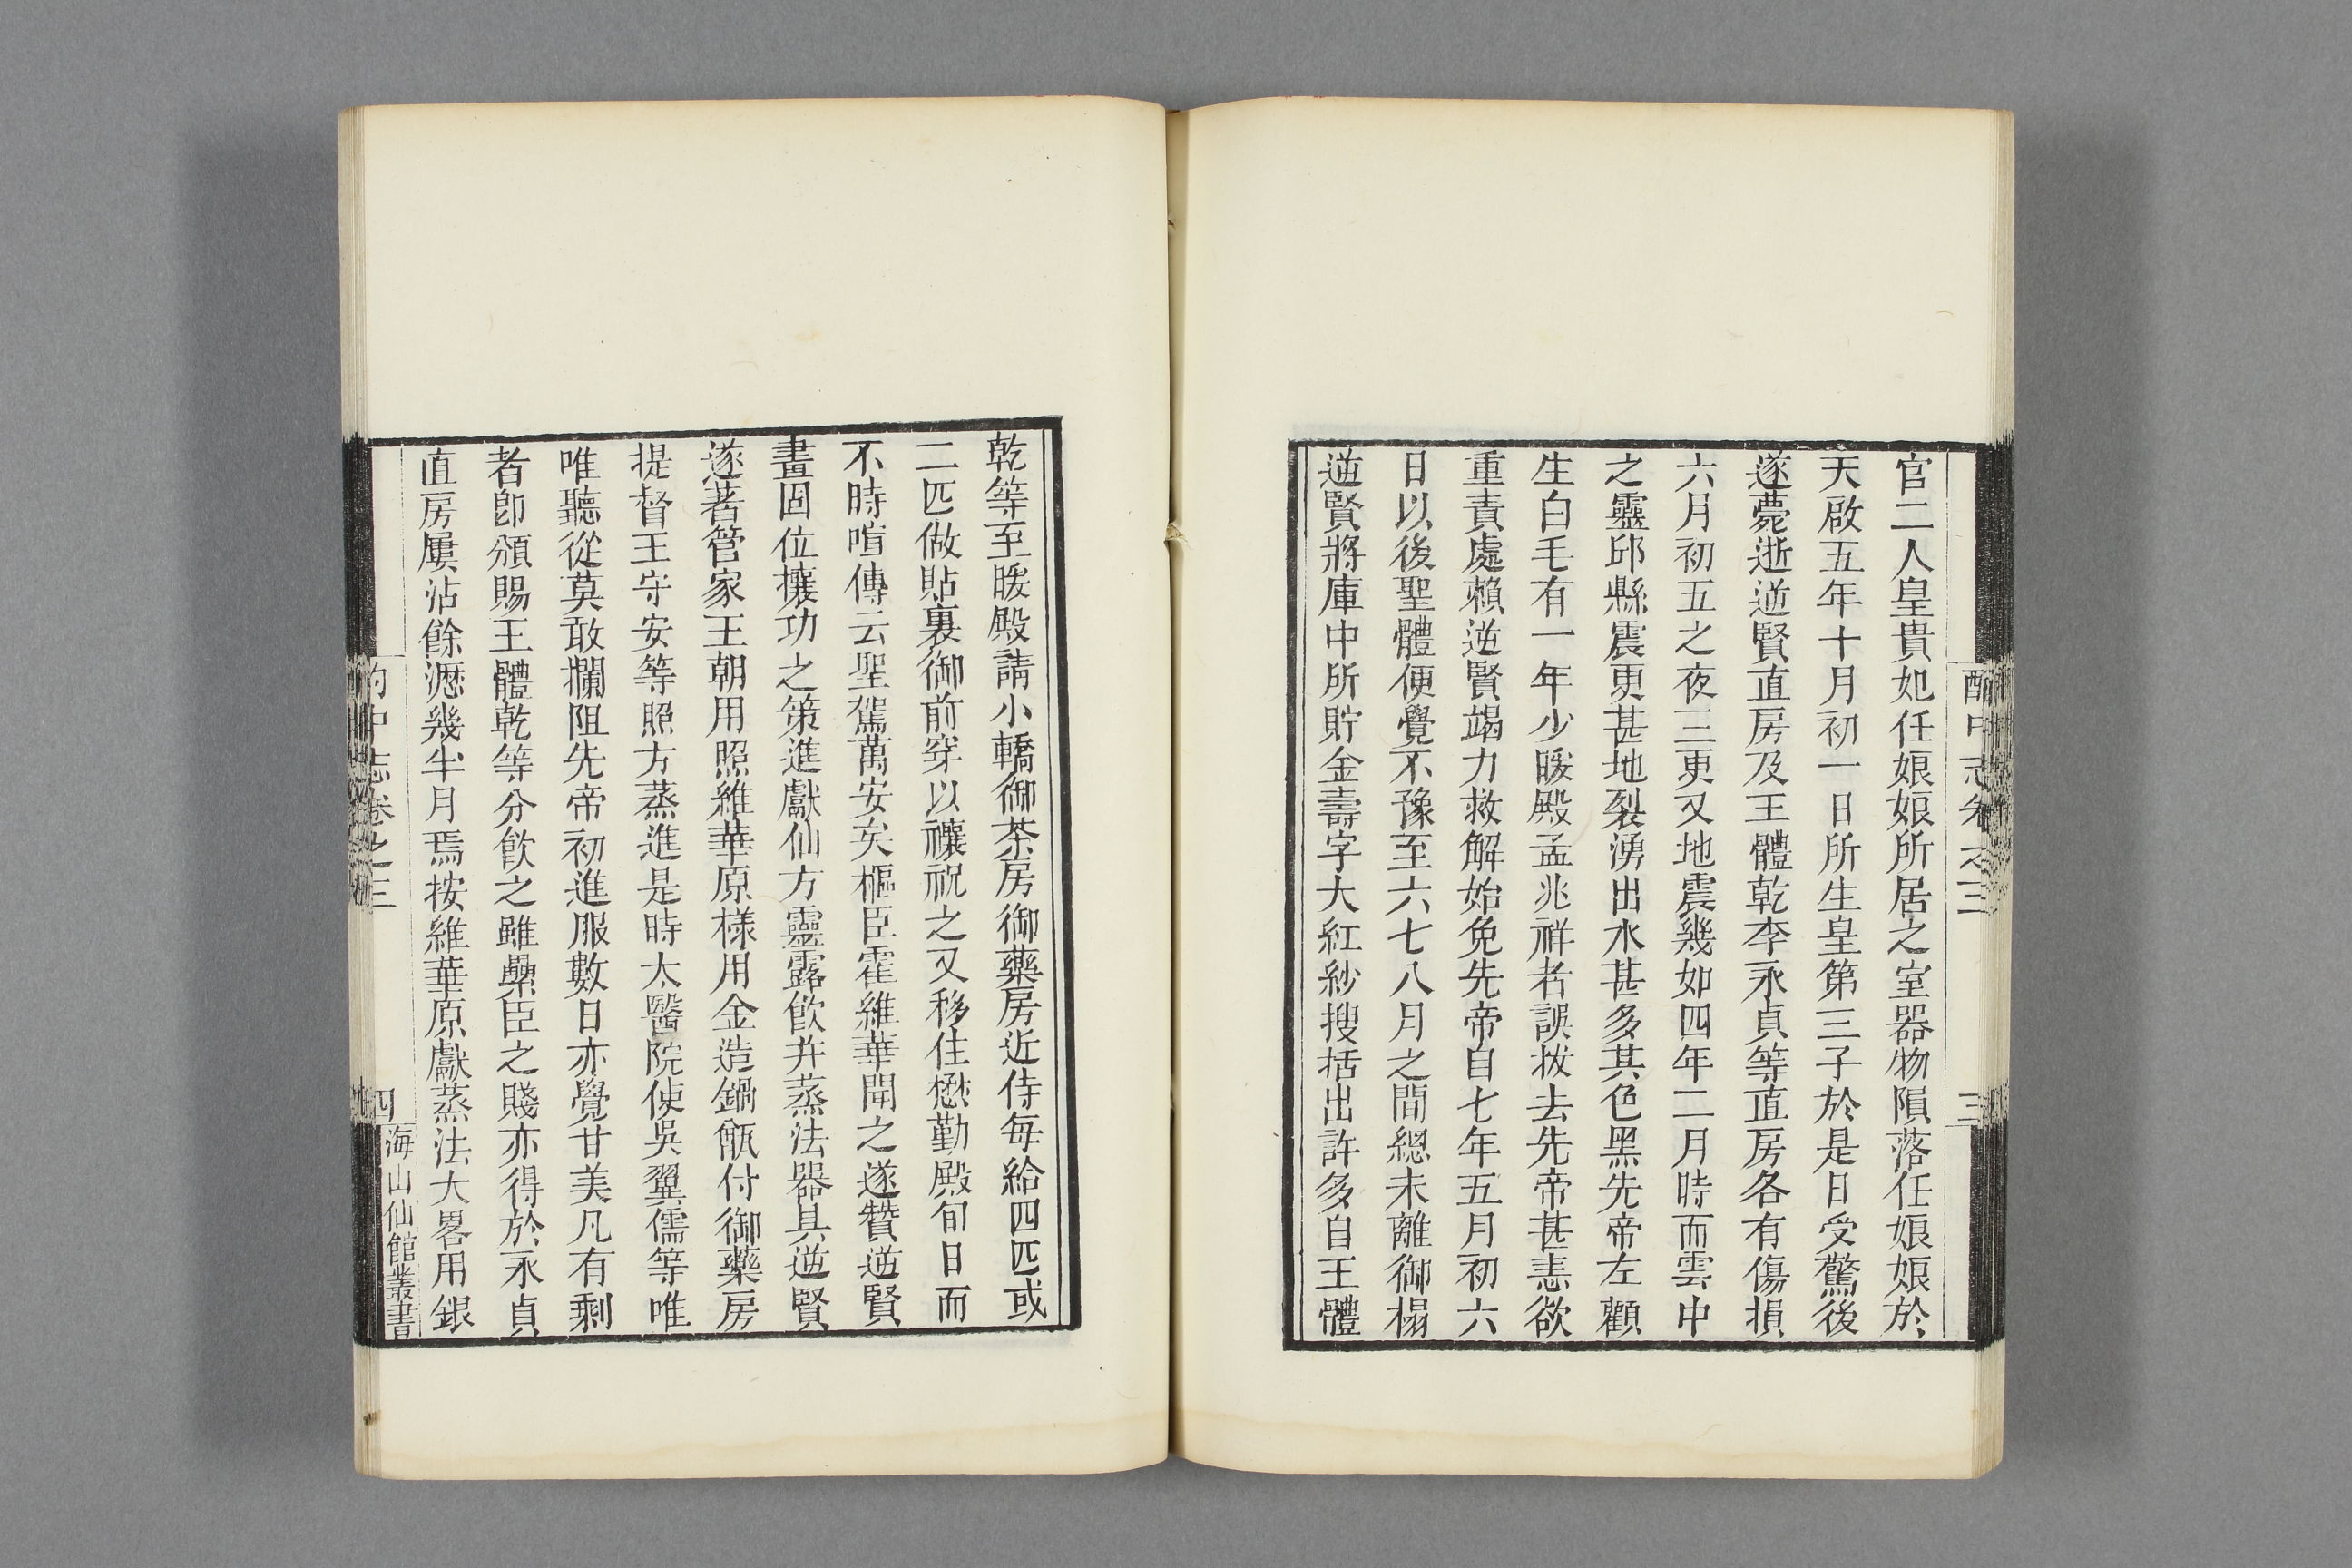 酌中志卷之三
三
官二人皇貴妃任娘娘所居之室器物隕落任娘娘於
天啟五年十月初一日所生皇第三子於是日受驚後
遂薨逝逆賢直房及王體乾李永貞等直房各有傷損
六月初五之夜三更又地震幾如四年二月時而雲中
之靈邱縣震更甚地裂湧出水甚多其色黑先帝左顴
生白毛有一年少暖殿孟兆祥者誤拔去先帝甚恚欲
重責處賴逆賢竭力救解始免先帝自七年五月初六
日以後聖體便覺不豫至六七八月之間總未離御榻
逆賢將庫中所貯金壽字大紅紗搜括出許多自王體
乾等至暖殿請小轎御茶房御藥房近侍每給四匹或
二匹做貼裏御前穿以禳祝之又移住懋勤殿旬日而
不時喧傳云聖駕萬安矣樞臣霍維華聞之遂贊逆賢
畫固位攘功之策進獻仙方靈露飲并蒸法器具逆賢
遂著管家王朝用照維華原樣用金造鍋甑付御藥房
提督王守安等照方蒸進是時太醫院使吳翼儒等唯
唯聽從莫敢攔阻先帝初進服數日亦覺甘美凡有剩
者卽頒賜王體乾等分飲之雖纍臣之賤亦得於永貞
直房屢沾餘瀝幾半月焉按維華原獻蒸法大畧用銀
酌中志卷之三
四
海山仙館叢書